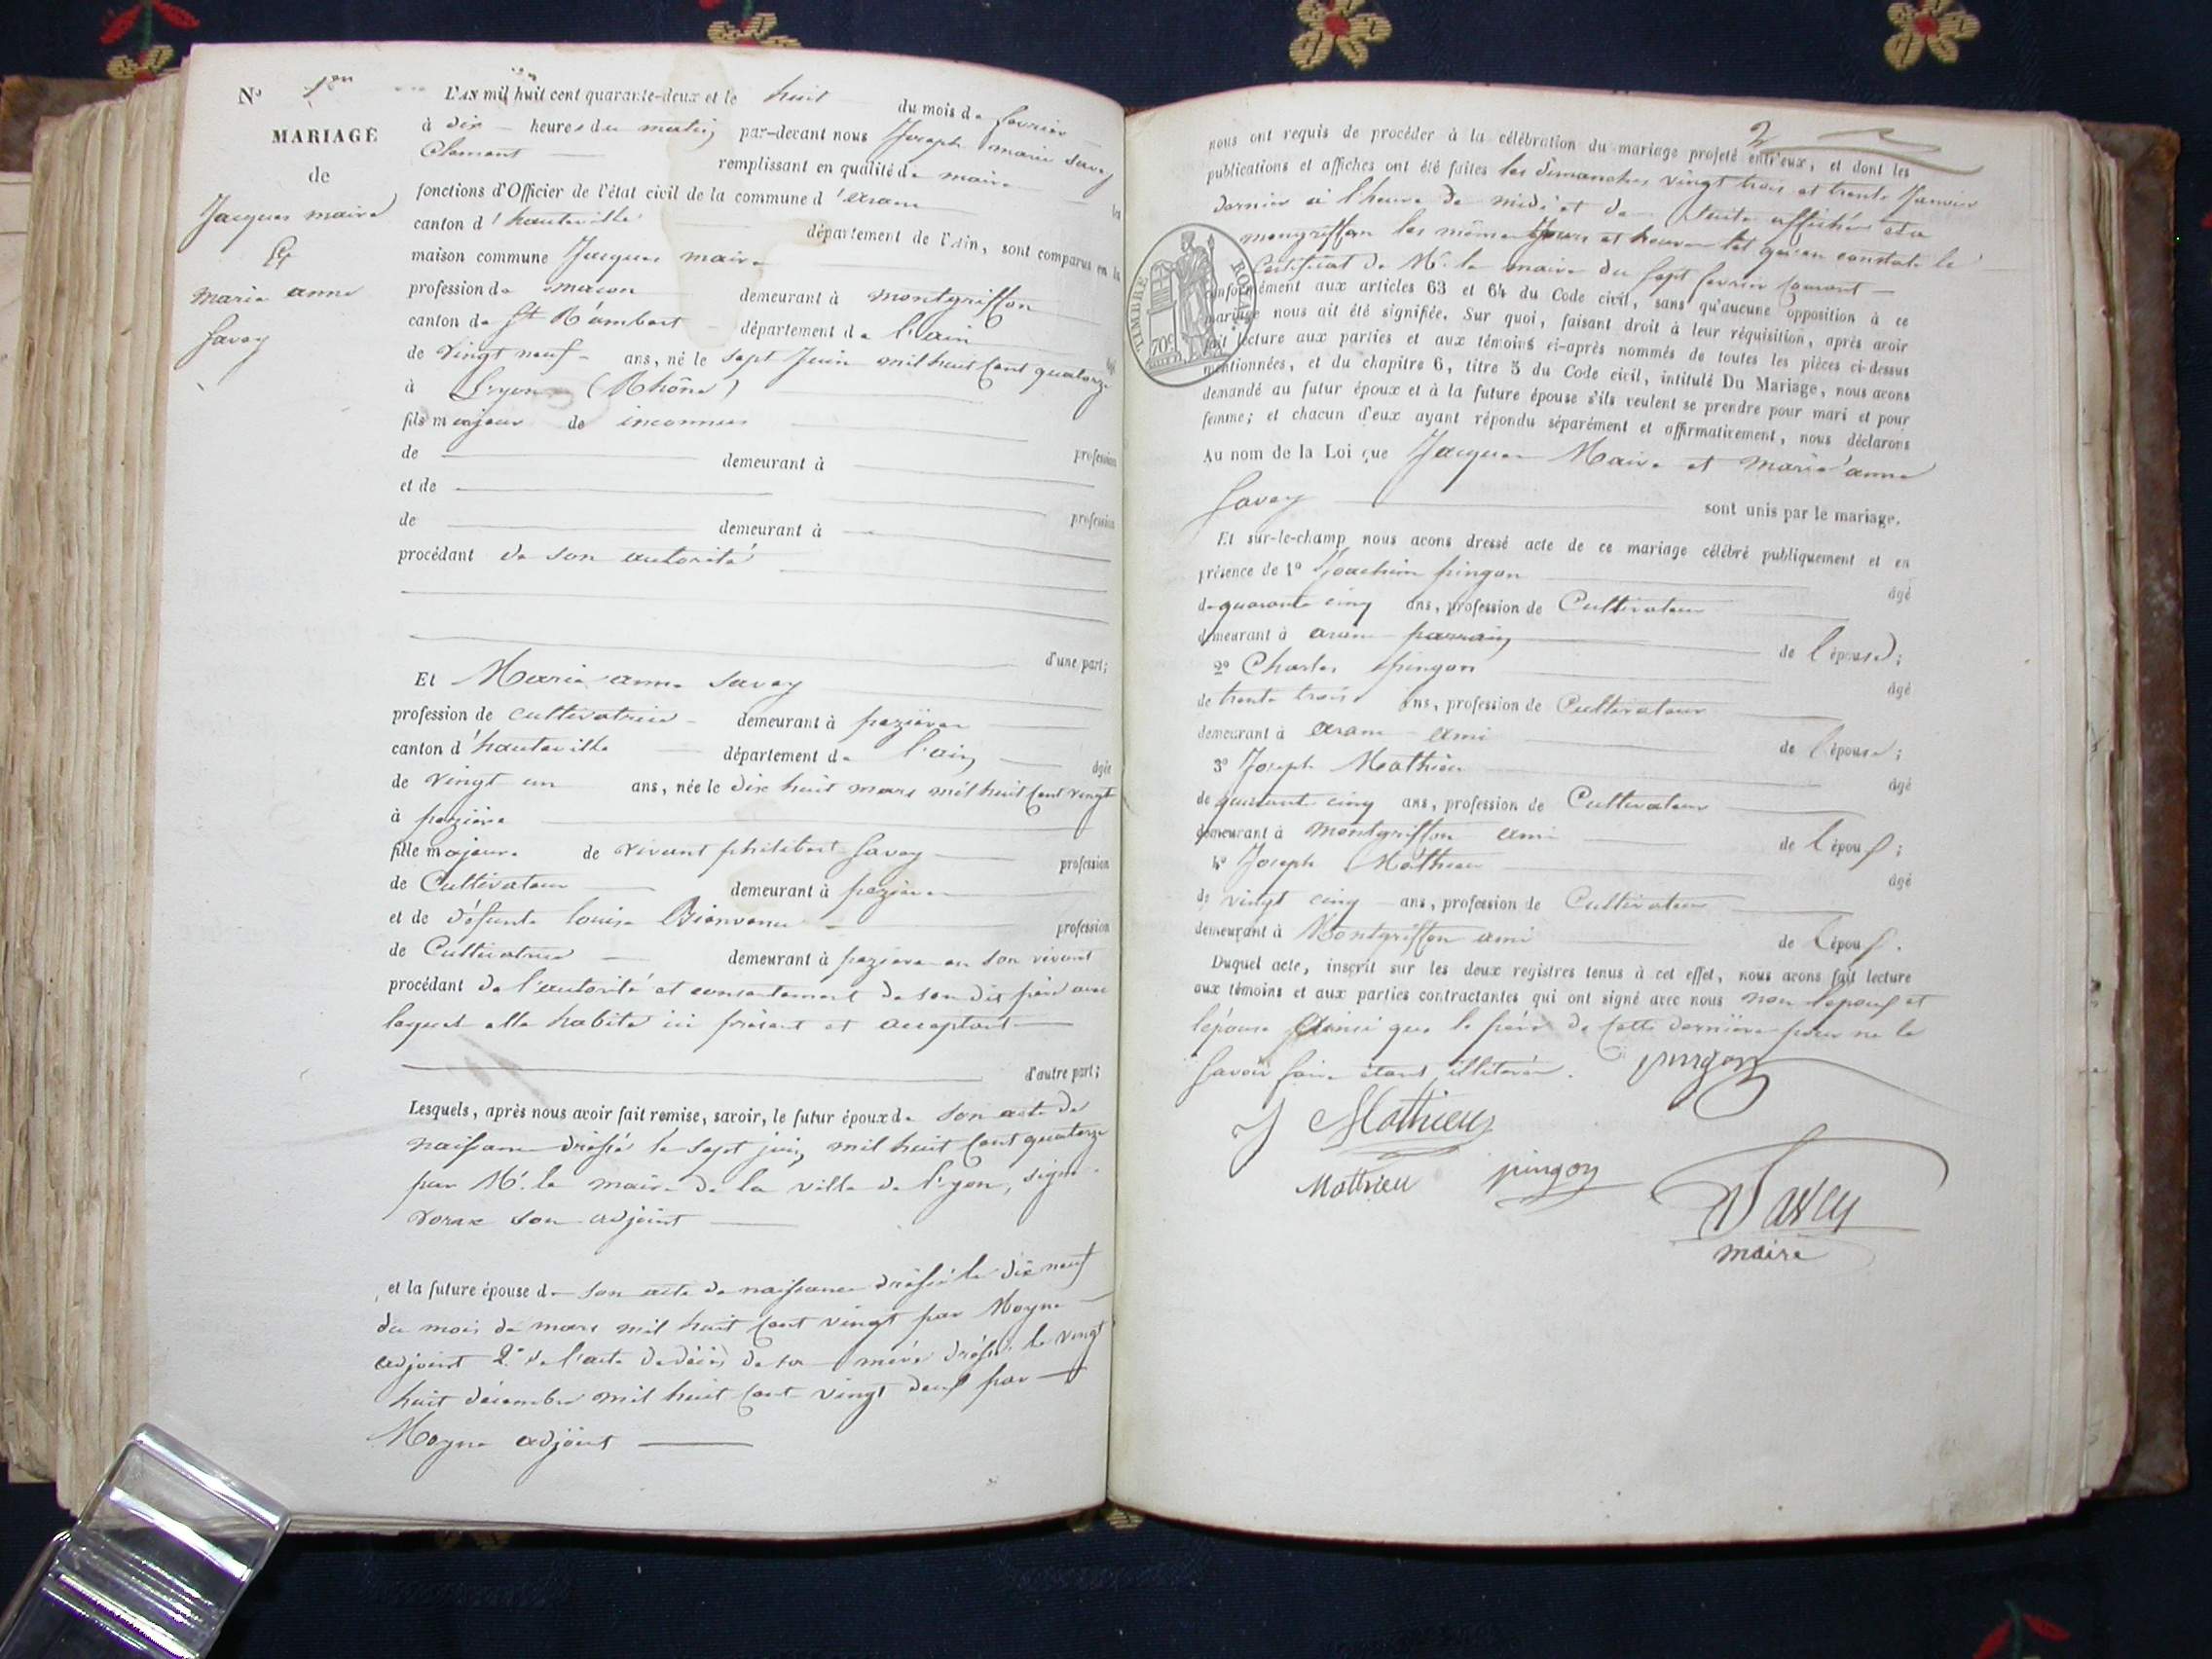 N° 1er
MARIAGE
de
Jacques maire
Et
marie anne
Savey
L'AN mil huit cent quarante-deux et le huit du mois de fevrier
à dix heures du matin par-devant nous Joseph marie Savey
Clement remplissant en qualité de maire les
fonctions d'Officier de l'état civil de la commune d'aranc
canton d'hauteville département de l'Ain, sont comparus en la
maison commune Jacques maire
profession de macon demeurant à montgriffon
canton de St Rambert département de l'ain âgé
de vingt neuf ans, né le sept Juin mil huit cent quatorze
à Lyon (Rhône)
fils majeur de inconnus
de demeurant à profession
et de
de demeurant à profession
procédant de son autorité
d'une part;
Et Marie anne Savey
profession de cultivatrice demeurant à pezieres
canton d'hauteville département de l'ain âgée
de vingt un ans, née le dix huit mars mil huit cent vingt
à peziere
fille majeure de vivant philibert Savey profession
de Cultivateur demeurant à peziere
et de défunte louise Bienvenu profession
de Cultivatrice demeurant à peziere en son vivant
procédant de l'autorité et consentement de son dit père avec
lequel elle habite ici présent et acceptant
d'autre part;
Lesquels, après nous avoir fait remise, savoir, le futur époux de son acte de
naissance dréssé le sept juin mil huit cent quatorze
par Mr. le maire de la ville de lyon, signé
son adjoint
et la future épouse de son acte de naissance dréssé le dix neuf
du mois de mars mil huit cent vingt par Moyne
adjoint 2.° de l'acte de décès de sa mère dréssé le vingt
huit décembre mil huit cent vingt deux par
Moyne adjoint
2
nous ont requis de procéder à la célébration du mariage projeté entr'eux, et dont les
publications et affiches ont été faites les dimanches vingt trois et trente Janvier
dernier à l'heure de midi et de suite affichées et a
mongriffon les même Jours et heures tel qu'en constate le
Certificat de Mr. le maire du sept fevrier courant
conformément aux articles 63 et 64 du Code civil, sans qu'aucune opposition à ce
mariage nous ait été signifiée. Sur quoi, faisant droit à leur réquisition, après avoir
fait lecture aux parties et aux témoins ci-après nommés de toutes les pièces ci-dessus
mentionnées, et du chapitre 6, titre 5 du Code civil, intitulé Du Mariage, nous avons
demandé au futur époux et à la future épouse s'ils veulent se prendre pour mari et pour
femme; et chacun d'eux ayant répondu séparément et affirmativement, nous déclarons
Au nom de la Loi que Jacques Maire et marie anne
Savey sont unis par le mariage.
Et sur-le-champ nous avons dressé acte de ce mariage célébré publiquement et en
présence de 1° Joachim pingon âgé
de quarante cinq ans, profession de Cultivateur
demeurant à aranc parrain de l'épouse;
2° Charles pingon âgé
de trente trois ans, profession de Cultivateur
demeurant à aranc ami de l'épouse;
3° Joseph Mathieu âgé
de quarante cinq ans, profession de Cultivateur
demeurant à montgriffon ami de l'époux;
4° Joseph Mathieu âgé
de vingt cinq ans, profession de Cultivateur
demeurant à Montgriffon ami de l'époux.
Duquel acte, inscrit sur les deux registres tenus à cet effet, nous avons fait lecture
aux témoins et aux parties contractantes qui ont signé avec nous non l'époux et
l'épouse Ainsi que le père de cette dernière pour ne le
savoir faire étant illitérés. pingon
J Mathieu
Mathieu pingon
Savey
maire
TIMBRE ROYAL
70c